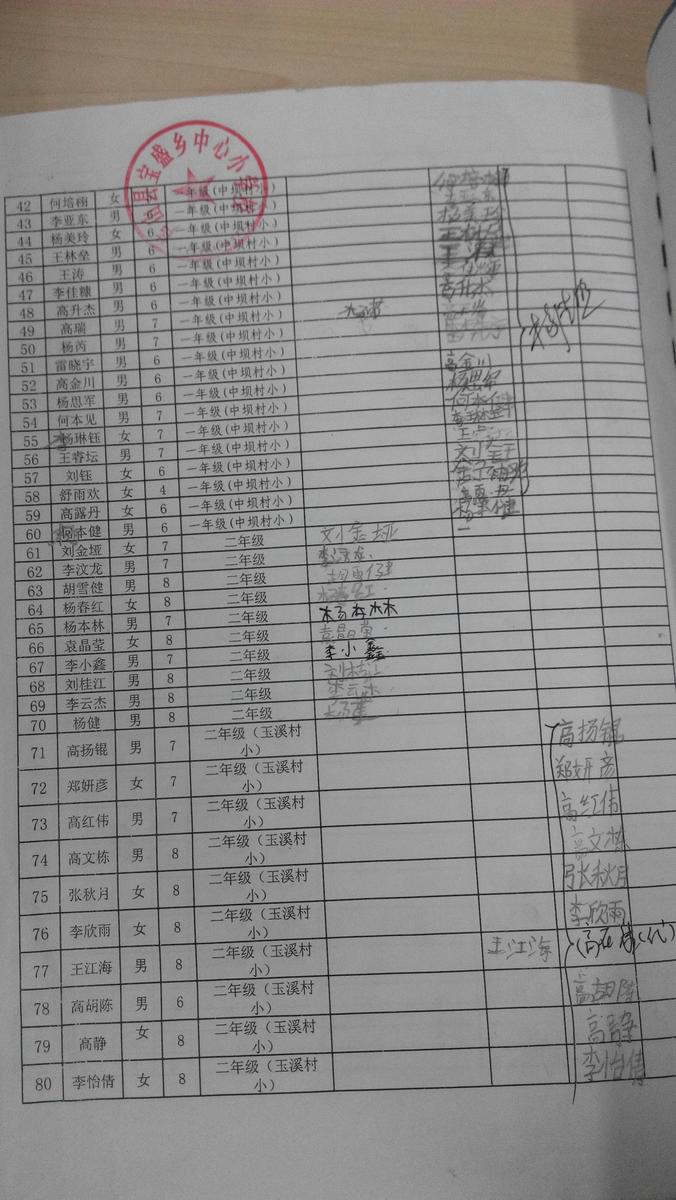 县宝盛乡中心小
42 何培栩 女 6 一年级(中坝村小)
43 李亚东 男 6 一年级(中坝村小)
44 杨美玲 女 6 一年级(中坝村小)
45 王林垒 男 6 一年级(中坝村小)
46 王涛 男 6 一年级(中坝村小)
47 李佳糠 男 6 一年级(中坝村小)
48 高升杰 男 6 一年级(中坝村小) 高升杰
49 高瑞 男 7 一年级(中坝村小)
50 杨芮 男 7 一年级(中坝村小)
51 雷晓宇 男 6 一年级(中坝村小)
52 高金川 男 6 一年级(中坝村小) 高金川
53 杨思军 男 6 一年级(中坝村小) 杨思军
54 何本见 男 7 一年级(中坝村小) 何本健
55 杨琳钰 女 7 一年级(中坝村小)
56 王睿坛 男 7 一年级(中坝村小)
57 刘钰 女 6 一年级(中坝村小)
58 舒雨欢 女 4 一年级(中坝村小)
59 高露丹 女 6 一年级(中坝村小)
60 何本健 男 6 一年级(中坝村小)
61 刘金垭 女 7 二年级 刘金垭
62 李汶龙 男 7 二年级 李汶龙
63 胡雪健 男 8 二年级 胡雪健
64 杨春红 女 8 二年级
65 杨本林 男 7 二年级 杨本林
66 袁晶莹 女 8 二年级 袁晶莹
67 李小鑫 男 7 二年级 李小鑫
68 刘桂江 男 8 二年级 刘桂江
69 李云杰 男 8 二年级 李云杰
70 杨健 男 8 二年级
71 高扬锟 男 7 二年级（玉溪村小） 高扬锟
72 郑妍彦 女 7 二年级（玉溪村小） 郑妍彦
73 高红伟 男 7 二年级（玉溪村小） 高红伟
74 高文栋 男 8 二年级（玉溪村小） 高文栋
75 张秋月 女 8 二年级（玉溪村小） 张秋月
76 李欣雨 女 8 二年级（玉溪村小） 李欣雨
77 王江海 男 8 二年级（玉溪村小） 王江海
78 高胡陈 男 6 二年级（玉溪村小） 高胡陈
79 高静 女 8 二年级（玉溪村小） 高静
80 李怡倩 女 8 二年级（玉溪村小） 李怡倩